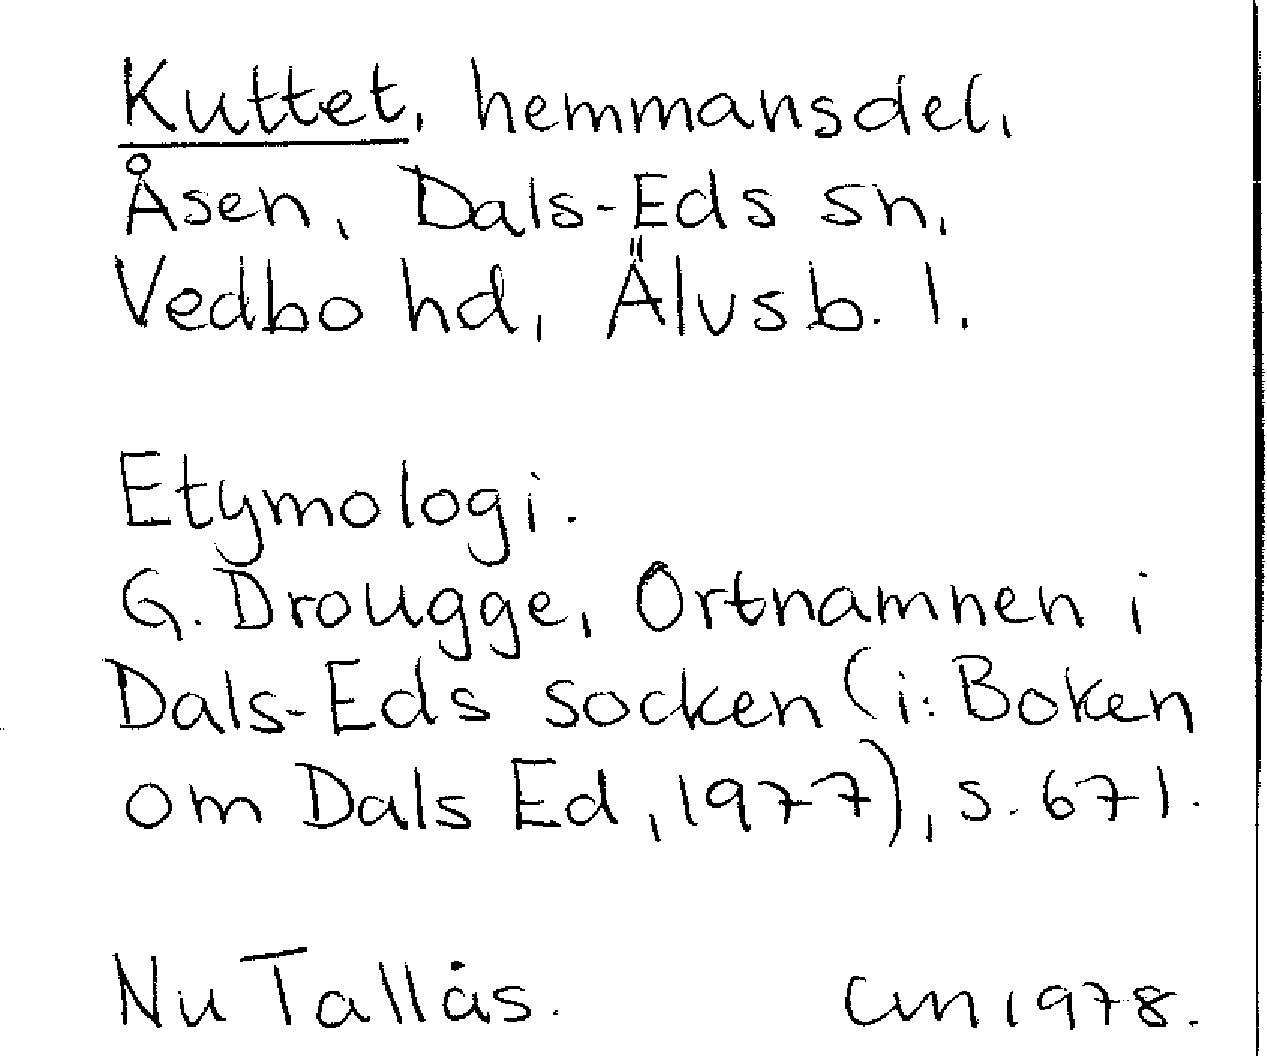 Kuttet, hemmansdel,
Åsen, Dals-Eds sn,
Vedbo hd, Älvsb. l.
Etymologi.
G. Drougge, Ortnamnen i
Dals-Eds socken (i: Boken
om Dals Ed, 1977), s. 671.
Nu Tallås. CM 1978.